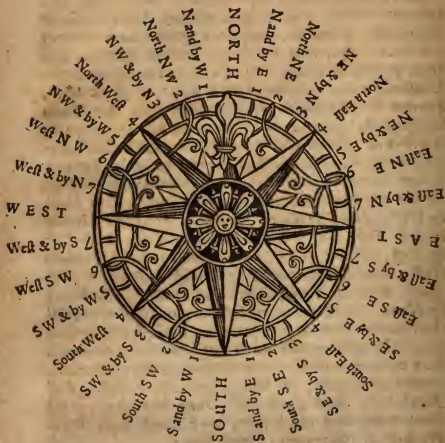 NORTH
N and by E 1
North NE 2
NE & by N 3
North Eaſt 4
NE & by E 5
Eaſt N E 6
Eaſt & by N 7
EAST
Eaſt & by S 7
Eaſt SE 6
SE & by E 5
South Eaſt 4
SE & by S 3
South S E 2
S and by E 1
SOUTH
S and by W 1
South SW 2
SW & by S 3
South Weſt 4
SW & by W 5
Weſt S W 6
Weſt & by S 7
WEST
Weſt & by N 7
Weſt N W 6
NW & by W 5
North Weſt 4
NW & by N 3
North NW 2
N and by W 1